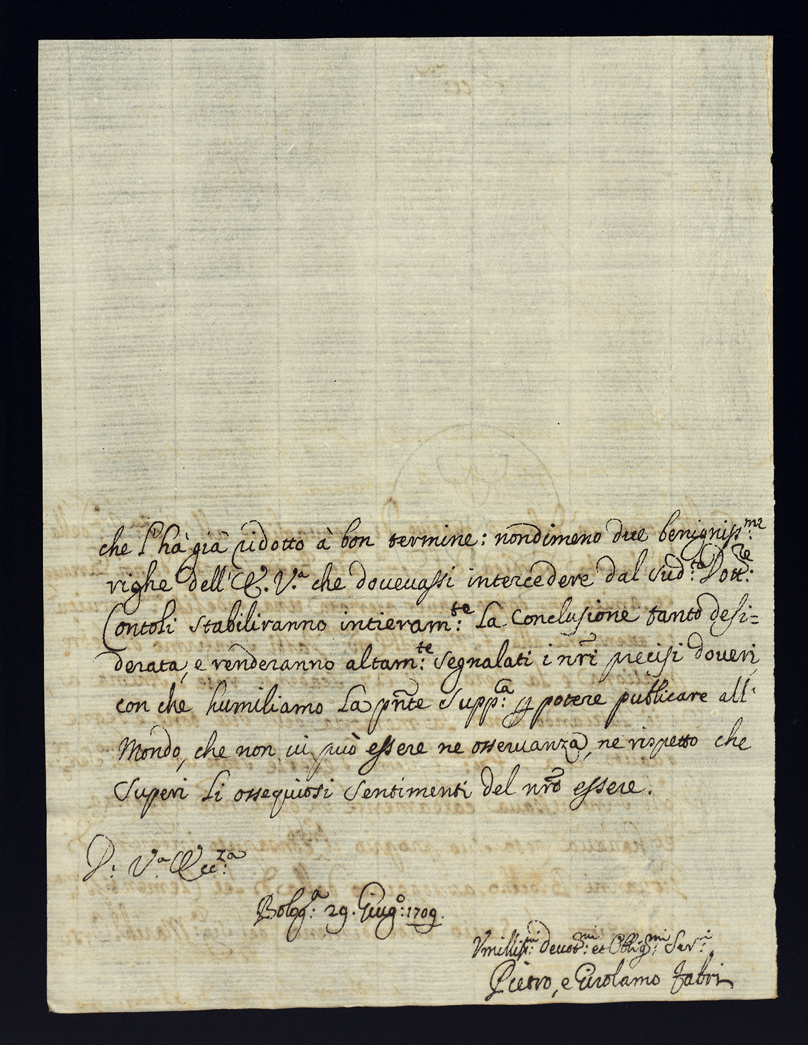 che l'hà già ridotto à bon termine: nondimeno due benigniss:me
righe dell'E. V.a che douevassi intercedere dal sud:to Dott:re
Contoli stabiliranno intieram:te La Conclusione tanto desi=
derata, e renderanno altam:te segnalati i nr̃i precisi doueri,
con che humiliamo La pñte supp:ca ꝑ potere publicare all'
Mondo, che non ui può essere ne osseruanza, ne rispetto che
superi Li ossequiosi sentimenti del nr̃o essere.
D: V.a Ecc:za
Bolog:a 29. Giug:o 1709.
Vmilliss:mi deuot:mi et Oblig:mi Ser:ri
Pietro, e Girolamo Fabri